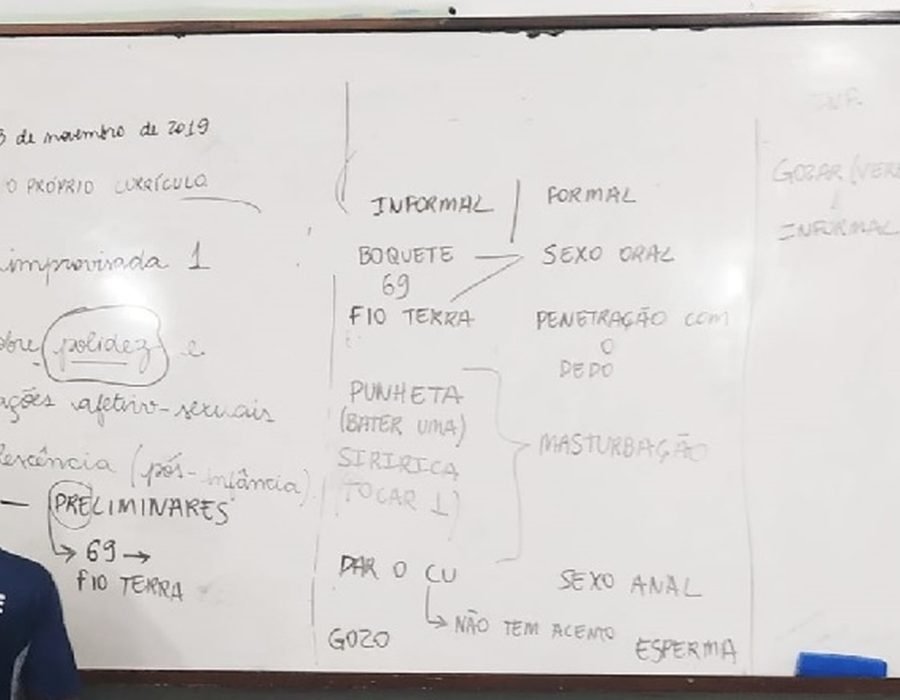 3 de novembro de 2019
O PRÓPRIO CURRÍCULO
improvisada 1
obre polidez e
ações afetivo-sexuais
lescência (pós-infância)
— PRELIMINARES
69
FIO TERRA
INFORMAL FORMAL
BOQUETE — SEXO ORAL
69
FIO TERRA PENETRAÇÃO COM
O
DEDO
PUNHETA
(BATER UMA)
SIRIRICA
(TOCAR 1)
MASTURBAÇÃO
DAR O CU SEXO ANAL
NÃO TEM ACENTO
GOZO ESPERMA
INF.
GOZAR (VER
INFORMAL